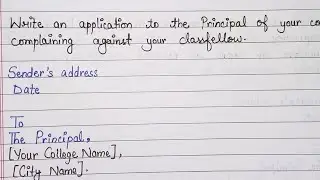 Write an application to the Principal of your
complaining against your classfellow.
Sender's address
Date
To
The Principal,
[Your College Name],
[City Name].